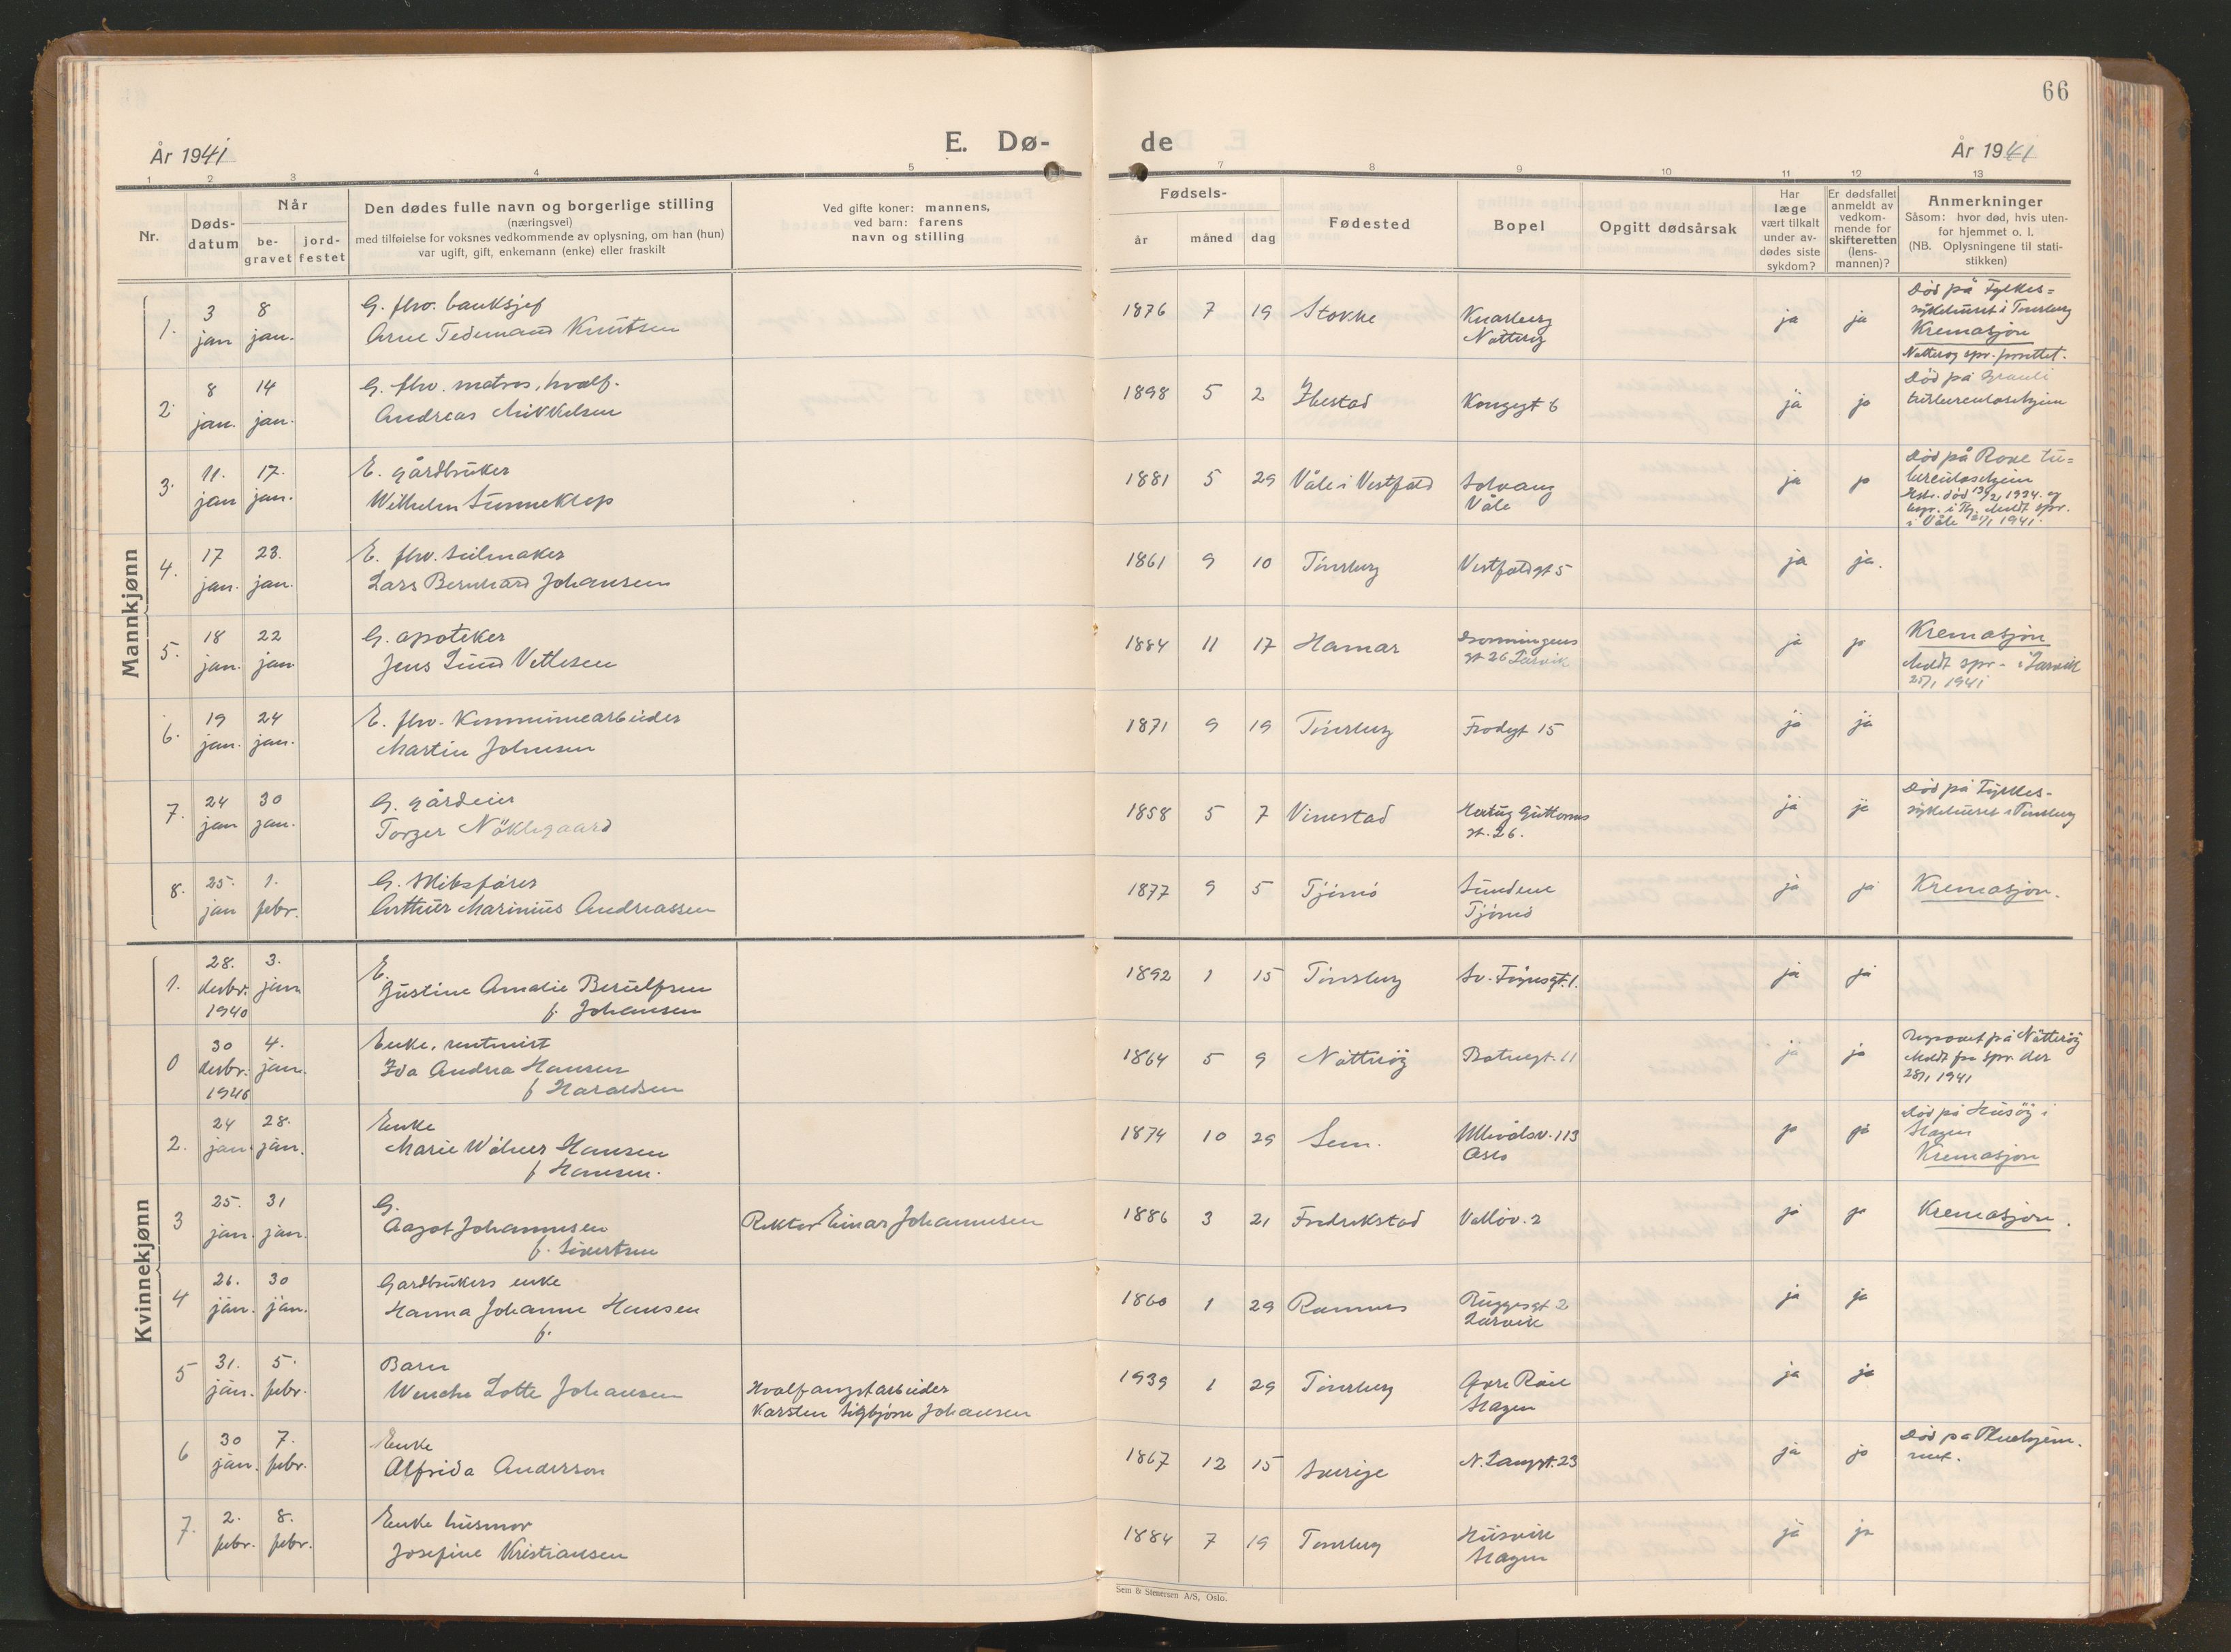 66
År 1941
E. Dø-
de
År 1941
1 2 3 4 5
7 8 9 10 11 12 13
Nr.
Døds-
datum
Når
be-
gravet
jord-
festet
Den dødes fulle navn og borgerlige stilling
(næringsvei)
med tilføielse for voksnes vedkommende av oplysning, om han (hun)
var ugift, gift, enkemann (enke) eller fraskilt
Ved gifte koner: mannens,
ved barn: farens
navn og stilling
Fødsels-
år måned dag
Fødested
Bopel
Opgitt dødsårsak
Har
læge
vært tilkalt
under av-
dødes siste
sykdom?
Er dødsfallet
anmeldt av
vedkom-
mende for
skifteretten
(lens-
mannen)?
Anmerkninger
Såsom: hvor død, hvis uten-
for hjemmet o. l.
(NB. Oplysningene til stati-
stikken)
Mannkjønn
1. 3 jan 8 jan.
G. fhv. banksjef
Arne Tedemand Knutsen
1876 7 19 Stokke
Knarberg
Nøtterøy
ja ja
Død på Fylkes=
sykehuset i Tønsberg
Kremasjon
Nøtterøy spr. forrettet.
2. 8 jan. 14 jan.
G. fhv. matros, hvalf.
Andreas Mikkelsen
1898 5 2 Ibestad Kongegt 6 ja ja
Død på Grauli
tuberculosehjem
3. 11. jan 17. jan.
E. gårdbruker
Wilhelm Sunneklep
1881 5 29 Våle i Vestfold
Solvang
Våle
ja ja
Død på Rove tu=
berculosehjem
død 13/2 1934. og
i Våle 1941.
4. 17 jan. 23. jan.
E. fhv. seilmaker
Lars Bernhard Johansen
1861 9 10 Tønsberg Vestfoldgt 5 ja ja.
5. 18 jan. 22 jan
G. apoteker
Jens Lund Vetlesen
1884 11 17 Hamar
Dronningens
gt 26 Larvik
ja ja
Kremasjon
Meldt spr. i Larvik
25/1 1941
6. 19 jan. 24 jan.
E. fhv. Kommunearbeider
Martin Johnsen
1871 9 19 Tønsberg Frodegt 15 ja ja
7. 24 jan 30 jan.
G. gårdeier
Torger Nöklegaard
1858 5 7 Vinestad
Hertug Guttorms
gt. 26.
ja ja
Død på Fylkes-
sykehuset i Tønsberg
8. 25. jan 1. febr.
G. Skibsfører
Arthur Marinius Andreassen
1877 9 5 Tjømø
Sundene
Tjømø
ja ja
Kremasjon.
Kvinnekjønn
1. 28. desbr. 1940 3. jan
E.
Justine Amalie Berulfsen
f. Johansen
1892 1 15 Tønsberg Sv. Føynsgt. 1. ja ja
0 30 desbr. 1940 4. jan.
Enke, rentenist
Ida Andrea Hansen
f Haraldsen
1864 5 9 Nøtterøy 11 ja ja
Begravet på Nøtterøy
Meldt fra spr. der
28/1 1941
2. 24 jan. 28. jan.
Enke
Marie Wølner Hansen
f Hansen.
1874 10 29 Sem.
Ullevålsv. 113
Oslo
ja ja
Død på Husøy i
Slagen
Kremasjon
3 25. jan. 31 jan.
G.
Aagot Johannesen
f. Sivertsen
Rektor Einar Johannesen
1886 3 21 Fredrikstad Velløv. 2 ja ja
Kremasjon.
4 26. jan. 30 jan.
Gardbrukers enke
Hanna Johanne Hansen
f.
1860 1 29 Ramnes
Ruggesgt 2
Larvik
ja ja
5 31. jan. 5. febr.
Barn
Wenche Lotte Johansen
Hvalfangstarbeider
Karsten Sigbjørn Johansen
1939 1 29 Tønsberg
Øvre Råel
Slagen
ja ja
6 30 jan. 7. febr.
Enke
Alfrida Anderson
1867 12 15 Sverige N. Langgt. 23 ja ja
Død på Pleiehjem-
met.
7. 2. febr. 8. febr.
Enke husmor
Josefine Kristiansen
1884 7 19 Tønsberg
Husvik
Slagen
ja ja
Sem & Stenersen A/S, Oslo.